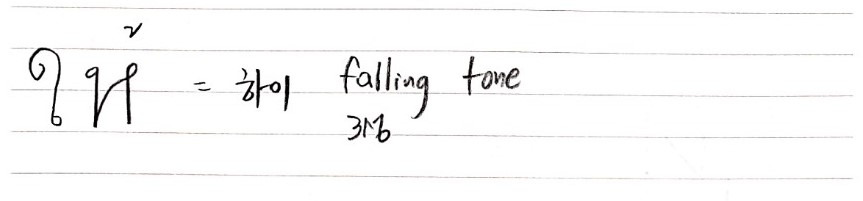 ให้ = 하이 falling tone
3성